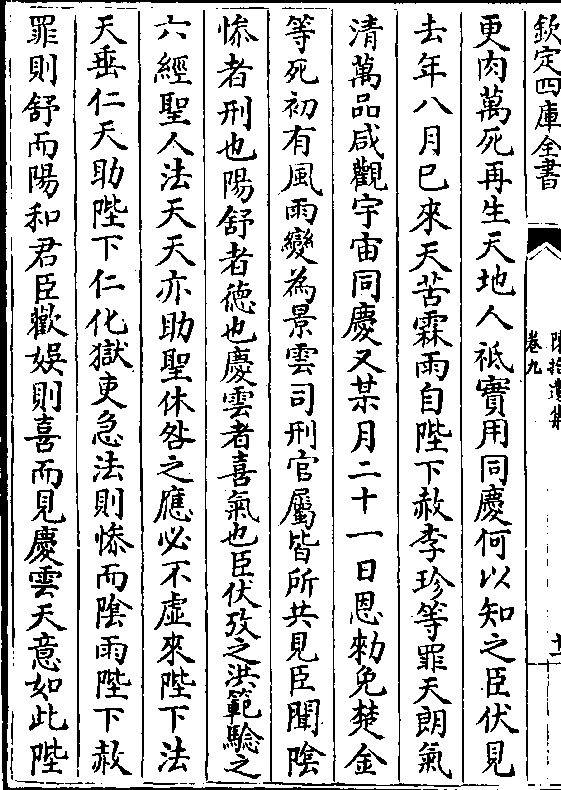 欽定四庫全書
卷九
更肉萬死再生天地人祗實用同慶何以知之臣伏見
去年八月已來天苦霖雨自陛下赦李珍等罪天朗氣
清萬品咸觀宇宙同慶又某月二十一日恩勑免楚金
等死初有風雨變為景雲司刑官屬皆所共見臣聞陰
慘者刑也陽舒者德也慶雲者喜氣也臣伏攷之洪範驗之
六經聖人法天天亦助聖休咎之應必不虛來陛下法
天垂仁天助陛下仁化獄吏急法則慘而陰雨陛下赦
罪則舒而陽和君臣歡娛則喜而見慶雲天意如此陛